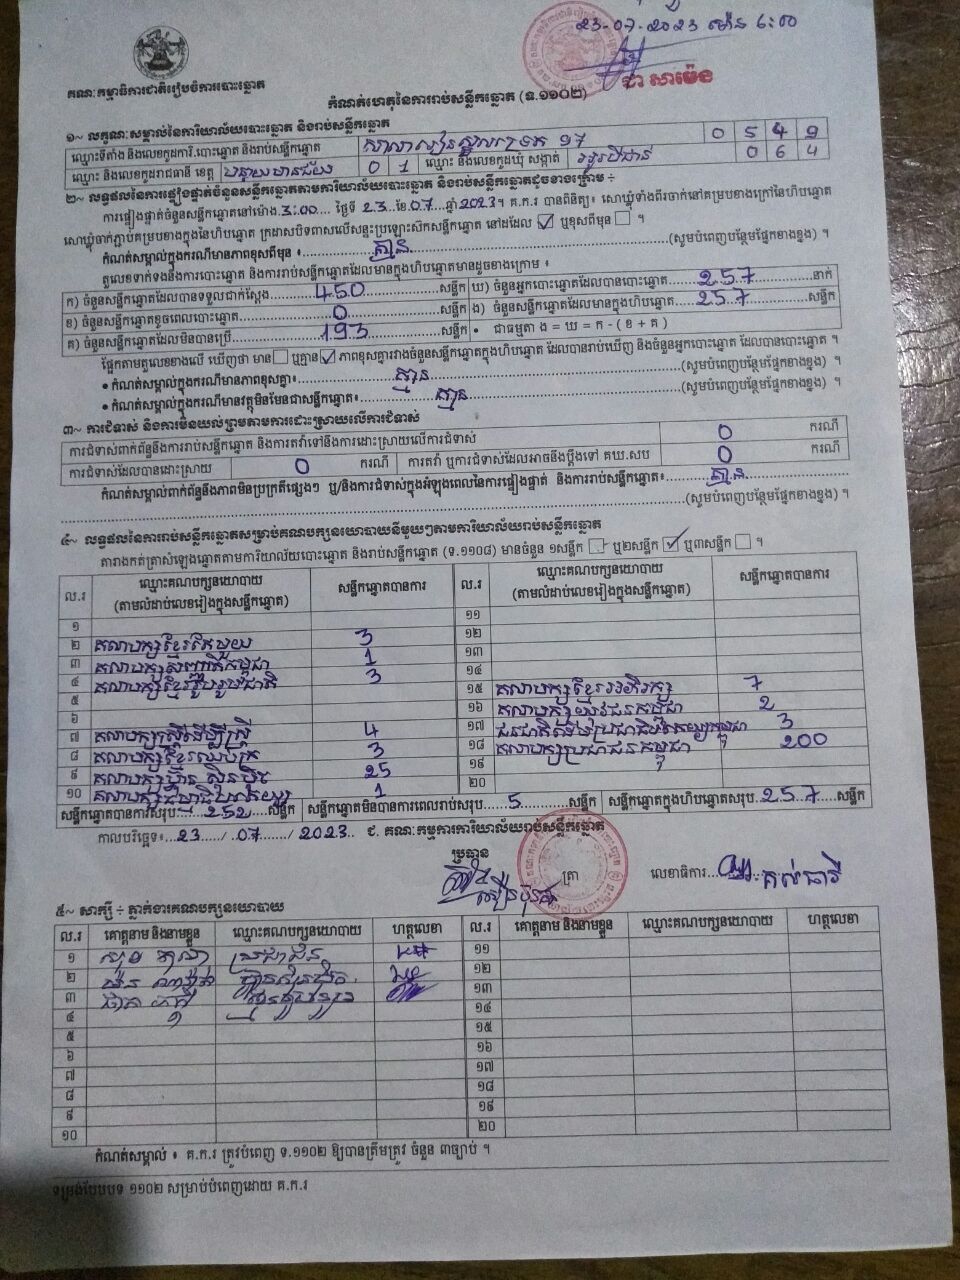 23-07-2023 ម៉ោង ៦:00
ជា សាម៉េង
គណៈកម្មាធិការជាតិរៀបចំការបោះឆ្នោត
កំណត់ហេតុនៃការរាប់សន្លឹកឆ្នោត (ទ.១១០២)
១~ លក្ខណៈសម្គាល់នៃការិយាល័យបោះឆ្នោត និងរាប់សន្លឹកឆ្នោត
ឈ្មោះទីតាំង និងលេខកូដការិ.បោះឆ្នោត និងរាប់សន្លឹកឆ្នោត 0 5 4 9
ឈ្មោះ និងលេខកូដរាជធានី ខេត្ត បន្ទាយមានជ័យ 0 1 ឈ្មោះ និងលេខកូដឃុំ សង្កាត់ 0 6 4
២~ លទ្ធផលនៃការផ្ទៀងផ្ទាត់ចំនួនសន្លឹកឆ្នោតតាមការិយាល័យបោះឆ្នោត និងរាប់សន្លឹកឆ្នោតដូចខាងក្រោម ÷
ការផ្ទៀងផ្ទាត់ចំនួនសន្លឹកឆ្នោតនៅម៉ោង 3:00 ថ្ងៃទី 23 ខែ 07 ឆ្នាំ 2023 ។ គ.ក.រ បានពិនិត្យ៖ សោឃ្លុំទាំងពីរចាក់នៅគម្របខាងក្រៅនៃហិបឆ្នោត
សោឃ្លុំចាក់ភ្ជាប់គម្របខាងក្នុងនៃហិបឆ្នោត ក្រដាសបិទពាសលើសន្ទះប្រឡោះសឹកសន្លឹកឆ្នោត នៅដដែល ✓ ឬខុសពីមុន ។
កំណត់សម្គាល់ក្នុងករណីមានភាពខុសពីមុន ៖ គ្មាន (សូមបំពេញបន្ថែមផ្នែកខាងខ្នង) ។
តួលេខទាក់ទងនឹងការបោះឆ្នោត និងការរាប់សន្លឹកឆ្នោតដែលមានក្នុងហិបឆ្នោតមានដូចខាងក្រោម ៖
ក) ចំនួនសន្លឹកឆ្នោតដែលបានទទួលជាក់ស្ដែង 450 សន្លឹក ឃ) ចំនួនអ្នកបោះឆ្នោតដែលបានបោះឆ្នោត 257 នាក់
ខ) ចំនួនសន្លឹកឆ្នោតខូចពេលបោះឆ្នោត 0 សន្លឹក ង) ចំនួនសន្លឹកឆ្នោតដែលមានក្នុងហិបឆ្នោត 257 សន្លឹក
គ) ចំនួនសន្លឹកឆ្នោតដែលមិនបានប្រើ 193 សន្លឹក • ជាធម្មតា ង = ឃ = ក - ( ខ + គ )
ផ្អែកតាមតួលេខខាងលើ ឃើញថា មាន ឬគ្មាន ✓ ភាពខុសគ្នារវាងចំនួនសន្លឹកឆ្នោតក្នុងហិបឆ្នោត ដែលបានរាប់ឃើញ និងចំនួនអ្នកបោះឆ្នោត ដែលបានបោះឆ្នោត ។
• កំណត់សម្គាល់ក្នុងករណីមានភាពខុសគ្នា៖ គ្មាន (សូមបំពេញបន្ថែមផ្នែកខាងខ្នង) ។
• កំណត់សម្គាល់ក្នុងករណីមានវត្ថុមិនមែនជាសន្លឹកឆ្នោត៖ គ្មាន (សូមបំពេញបន្ថែមផ្នែកខាងខ្នង) ។
៣~ ការជំទាស់ និងការមិនយល់ព្រមតាមការដោះស្រាយលើការជំទាស់
ការជំទាស់ពាក់ព័ន្ធនឹងការរាប់សន្លឹកឆ្នោត និងការតវ៉ាទៅនឹងការដោះស្រាយលើការជំទាស់ 0 ករណី
ការជំទាស់ដែលបានដោះស្រាយ 0 ករណី ការតវ៉ា ឬការជំទាស់ដែលអាចនឹងប្ដឹងទៅ គឃ.សប 0 ករណី
កំណត់សម្គាល់ពាក់ព័ន្ធនឹងភាពមិនប្រក្រតីផ្សេងៗ ឬ/និងការជំទាស់ក្នុងអំឡុងពេលនៃការផ្ទៀងផ្ទាត់ និងការរាប់សន្លឹកឆ្នោត៖ គ្មាន
(សូមបំពេញបន្ថែមផ្នែកខាងខ្នង) ។
៤~ លទ្ធផលនៃការរាប់សន្លឹកឆ្នោតសម្រាប់គណបក្សនយោបាយនីមួយៗតាមការិយាល័យរាប់សន្លឹកឆ្នោត
តារាងកត់ត្រាសំឡេងឆ្នោតតាមការិយាល័យបោះឆ្នោត និងរាប់សន្លឹកឆ្នោត (ទ.១១០៨) មានចំនួន ១សន្លឹក ឬ២សន្លឹក ✓ ឬ៣សន្លឹក ។
ល.រ ឈ្មោះគណបក្សនយោបាយ (តាមលំដាប់លេខរៀងក្នុងសន្លឹកឆ្នោត) សន្លឹកឆ្នោតបានការ ល.រ ឈ្មោះគណបក្សនយោបាយ (តាមលំដាប់លេខរៀងក្នុងសន្លឹកឆ្នោត) សន្លឹកឆ្នោតបានការ
១ ១១
២ គណបក្សខ្មែរតែមួយ 3 ១២
៣ គណបក្សសញ្ជាតិកម្ពុជា 1 ១៣
៤ គណបក្សខ្មែររួបរួមជាតិ 3 ១៤
៥ ១៥ គណបក្សខ្មែរអភិរក្ស 7
៦ ១៦ គណបក្សយុវជនកម្ពុជា 2
៧ គណបក្សស្ត្រីដើម្បីស្ត្រី 4 ១៧ 3
៨ គណបក្សខ្មែរឈប់ក្រ 3 ១៨ គណបក្សប្រជាជនកម្ពុជា 200
៩ គណបក្សហ្វ៊ុនស៊ិនប៉ិច 25 ១៩
១០ 1 ២០
សន្លឹកឆ្នោតបានការសរុប 252 សន្លឹក សន្លឹកឆ្នោតមិនបានការពេលរាប់សរុប 5 សន្លឹក សន្លឹកឆ្នោតក្នុងហិបឆ្នោតសរុប 257 សន្លឹក
កាលបរិច្ឆេទ៖ 23 / 07 / 2023 ជ. គណៈកម្មការការិយាល័យរាប់សន្លឹកឆ្នោត
ប្រធាន
ត្រា
លេខាធិការ
៥~ សាក្សី ÷ ភ្នាក់ងារគណបក្សនយោបាយ
ល.រ គោត្តនាម និងនាមខ្លួន ឈ្មោះគណបក្សនយោបាយ ហត្ថលេខា ល.រ គោត្តនាម និងនាមខ្លួន ឈ្មោះគណបក្សនយោបាយ ហត្ថលេខា
១ ប្រជាជន ១១
២ ហ្វ៊ុនស៊ិនប៉ិច ១២
៣ ១៣
៤ ១៤
៥ ១៥
៦ ១៦
៧ ១៧
៨ ១៨
៩ ១៩
១០ ២០
កំណត់សម្គាល់ ៖ គ.ក.រ ត្រូវបំពេញ ទ.១១០២ ឱ្យបានត្រឹមត្រូវ ចំនួន ៣ច្បាប់ ។
ទម្រង់បែបបទ ១១០២ សម្រាប់បំពេញដោយ គ.ក.រ